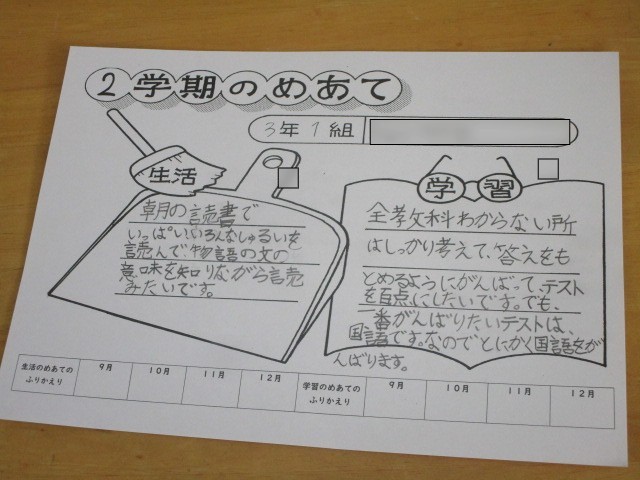 2学期のめあて
3年1組
生活
朝の読書で
いっぱいいろんなしゅるいを
読んで、物語の文の
意味を知りながら読
みたいです。
学習
全孝文科わからない所
はしっかり考えて、答えをも
とめるようにがんばって、テスト
を百点にしたいです。でも、
一番がんばりたいテストは、
国語です。なのでとにかく国語をが
んばります。
生活のめあての
ふりかえり
9月
10月
11月
12月
学習のめあての
ふりかえり
9月
10月
11月
12月